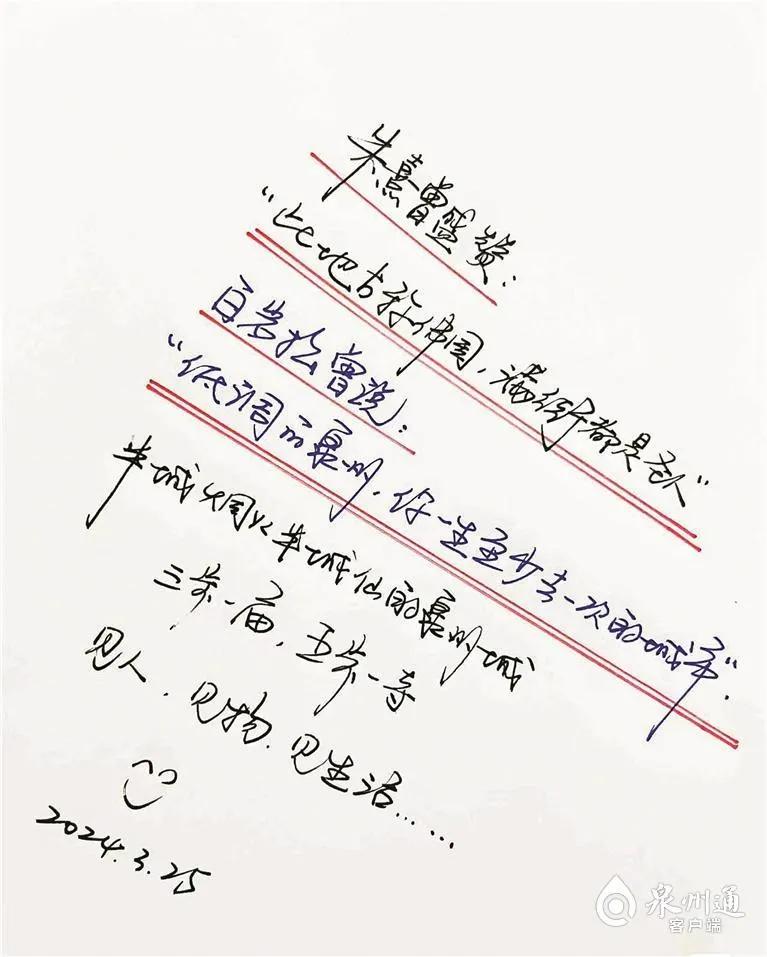 朱熹曾盛赞：
“此地古称佛国，满街都是圣人”
白岩松曾说：
“低调的泉州，你一生至少去一次的城市”.
半城烟火半城仙的泉州城
三步一庙，五步一寺
见人、见物、见生活……
2024.3.25
泉州通
客户端